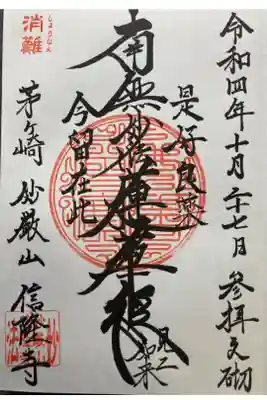 令和四年十月二十七日 参拝之砌
是好良薬
南無妙法蓮華経
今留在此
消難
しょうなん
茅ヶ崎 妙厳山 信隆寺